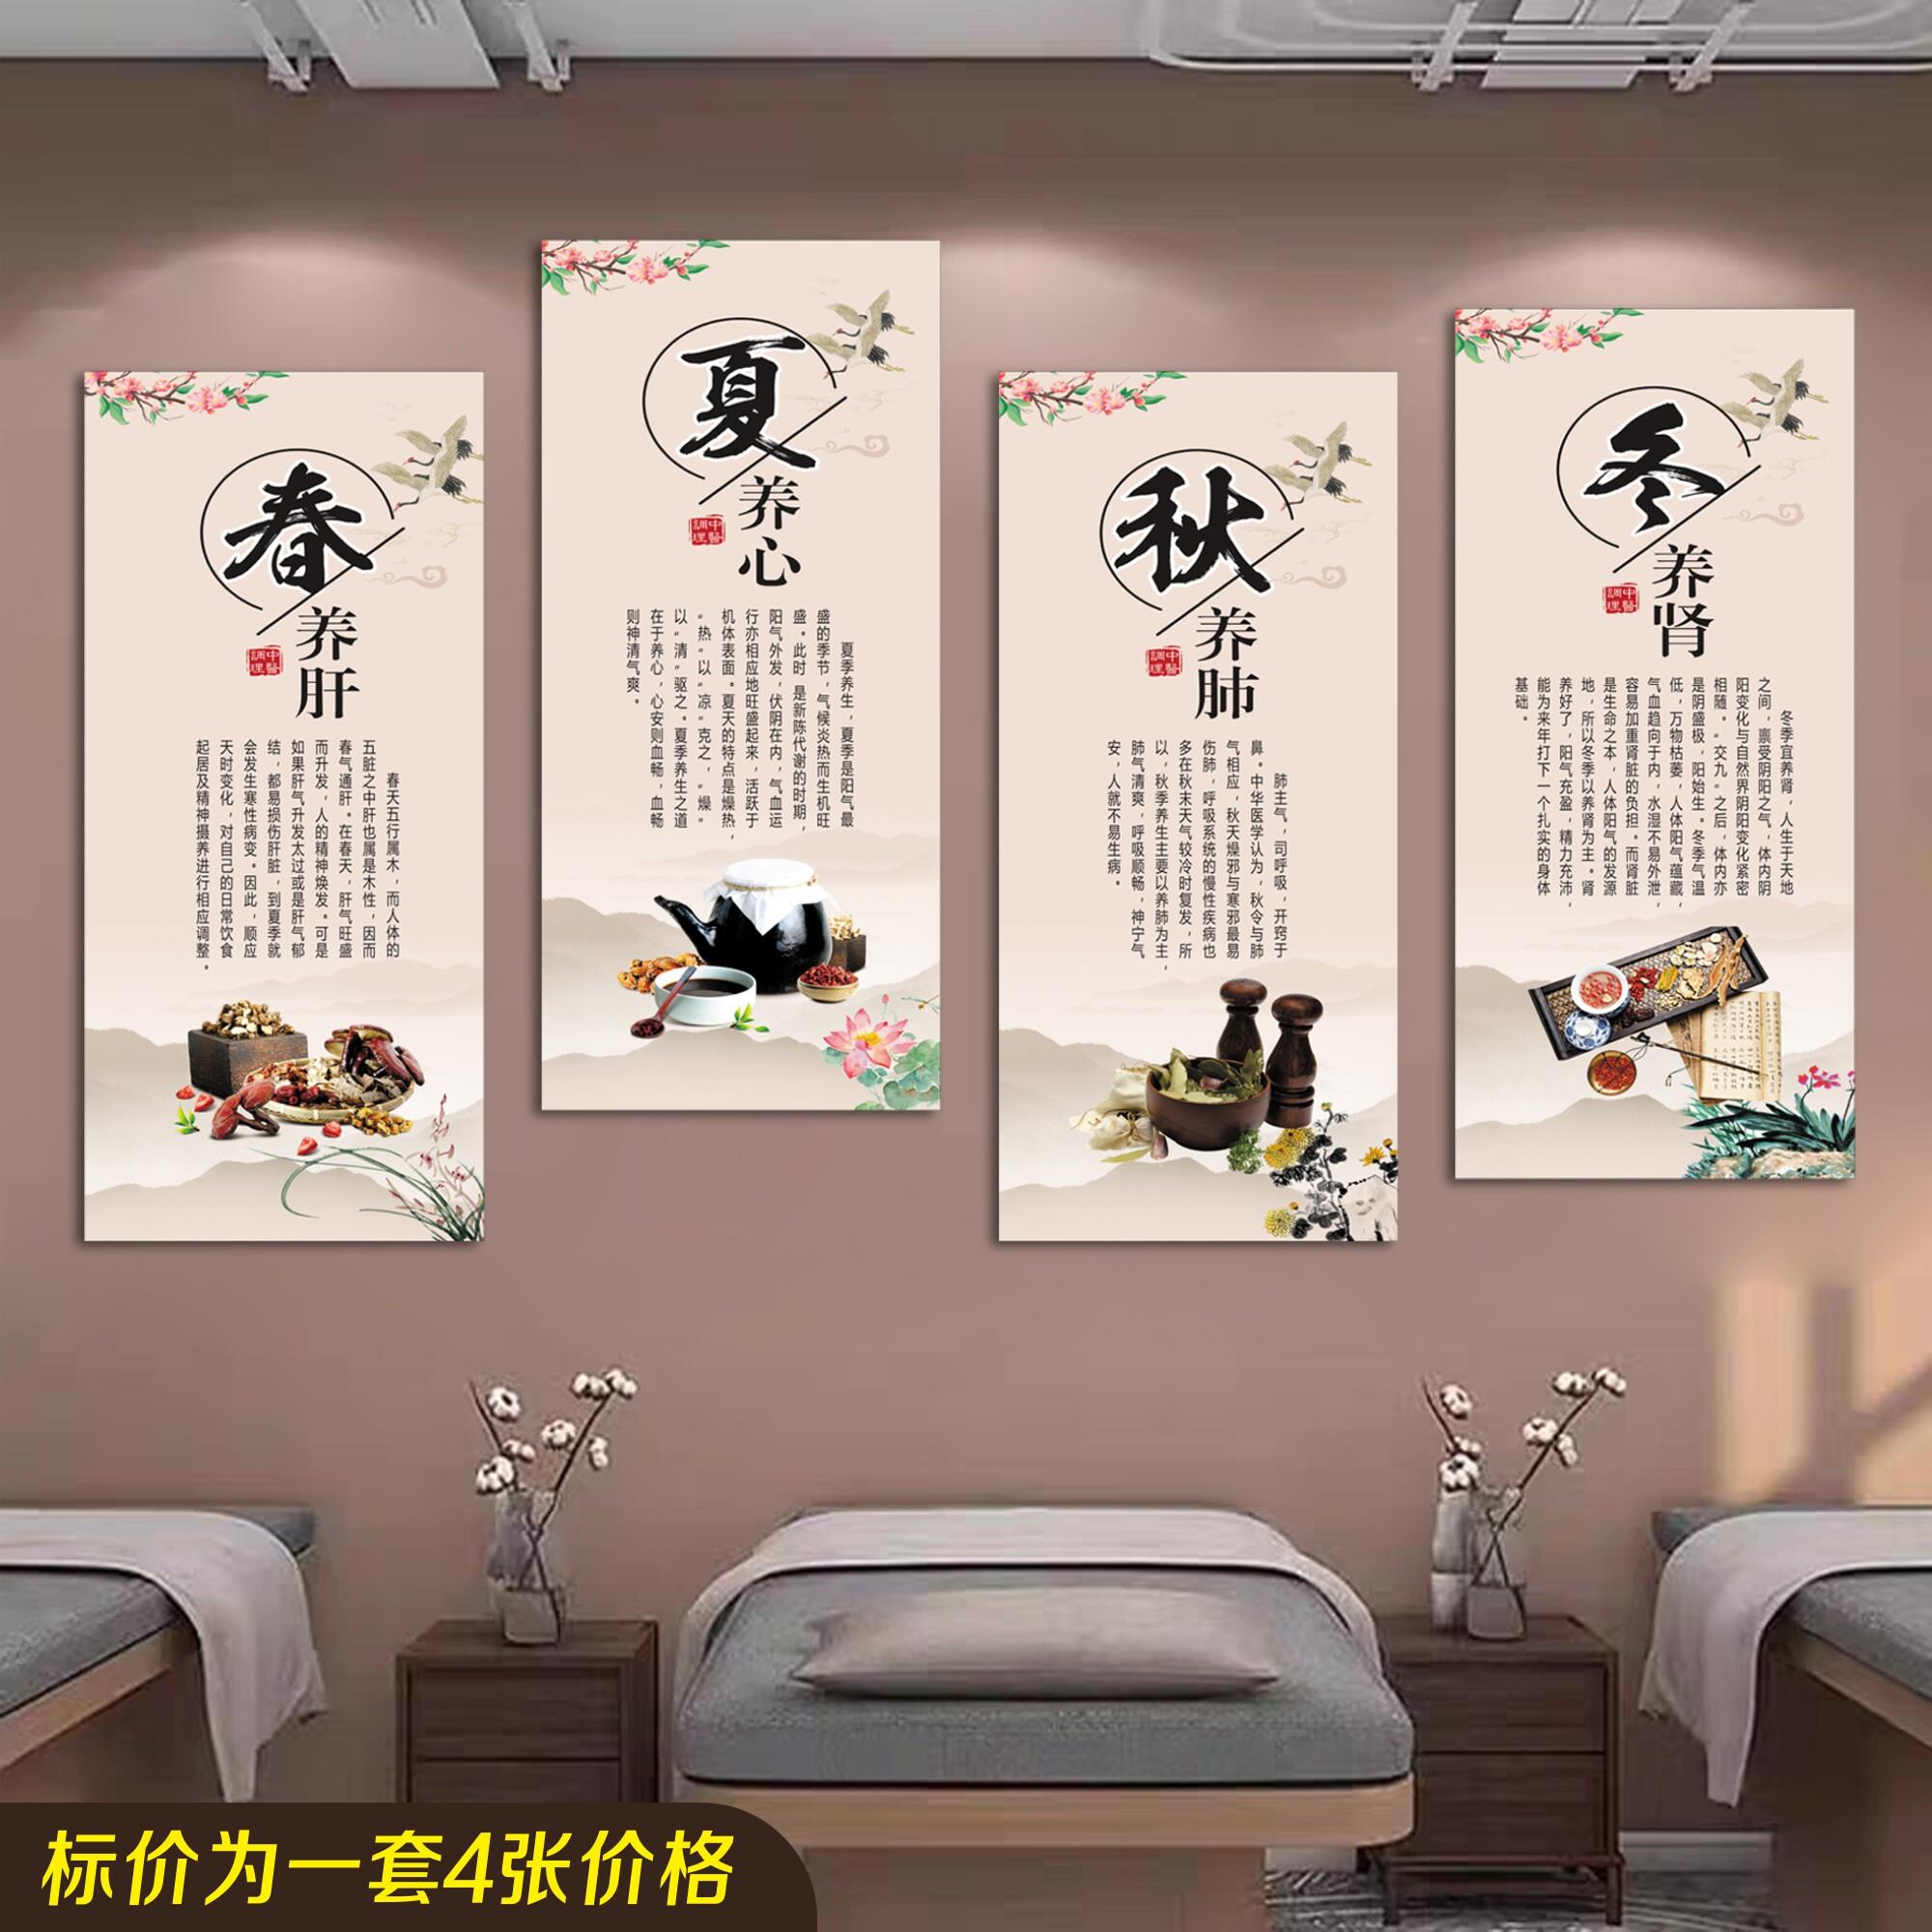 春
养肝
中醫
調理
春天五行属木，而人体的
五脏之中肝也属是木性，因而
春气通肝。在春天，肝气旺盛
而升发，人的精神焕发。可是
如果肝气升发太过或是肝气郁
结，都易损伤肝脏，到夏季就
会发生寒性病变。因此，顺应
天时变化，对自己的日常饮食
起居及精神摄养进行相应调整。
夏
养心
中醫
調理
夏季养生，夏季是阳气最
盛的季节，气候炎热而生机旺
盛。此时 是新陈代谢的时期，
阳气外发，伏阴在内，气血运
行亦相应地旺盛起来，活跃于
机体表面。夏天的特点是燥热，
“热”以“凉”克之，“燥”
以“清”驱之。夏季养生之道
在于养心，心安则血畅，血畅
则神清气爽。
秋
养肺
中醫
調理
肺主气，司呼吸，开窍于
鼻。中华医学认为，秋令与肺
气相应，秋天燥邪与寒邪最易
伤肺，呼吸系统的慢性疾病也
多在秋末天气较冷时复发，所
以，秋季养生主要以养肺为主，
肺气清爽，呼吸顺畅，神宁气
安，人就不易生病。
冬
养肾
中醫
調理
冬季宜养肾，人生于天地
之间，禀受阴阳之气，体内阴
阳变化与自然界阴阳变化紧密
相随。“交九”之后，体内亦
是阴盛极，阳始生。冬季气温
低，万物枯萎，人体阳气蕴藏，
气血趋向于内，水湿不易外泄，
容易加重肾脏的负担。而肾脏
是生命之本，人体阳气的发源
地，所以冬季以养肾为主。肾
养好了，阳气充盈，精力充沛，
能为来年打下一个扎实的身体
基础。
标价为一套4张价格